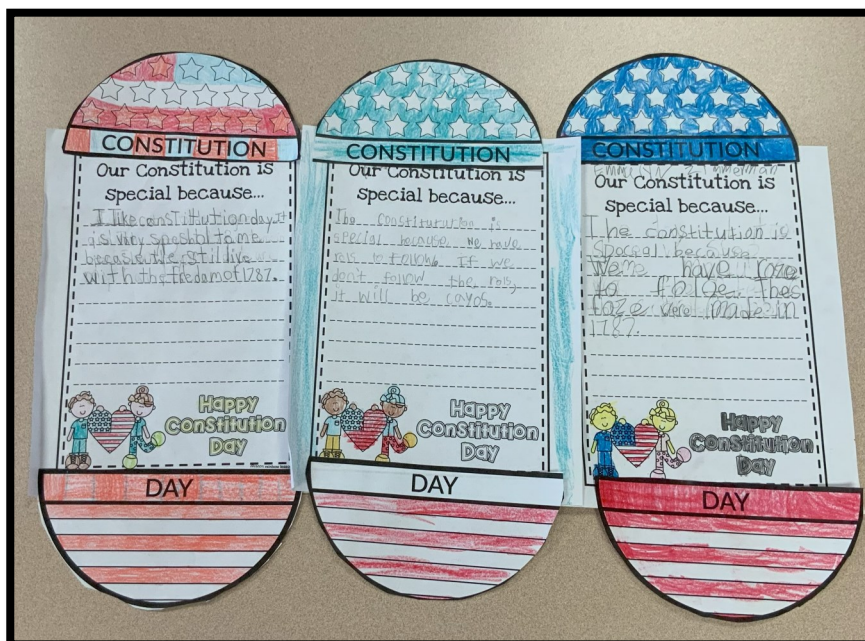 CONSTITUTION
Our Constitution is
special because...
I like constitution day. It
is very speshol to me
because we still live
with the fredom of 1787.
Happy
Constitution
Day
DAY
CONSTITUTION
Our Constitution is
special because...
The constiturution is
special because we have
rols to follow. If we
don't follow the rols,
it will be cayos.
Happy
Constitution
Day
DAY
CONSTITUTION
Emma Zimmerman
Our Constitution is
special because...
The constitution is
because
have
to thes
were made in
1787.
Happy
Constitution
Day
DAY